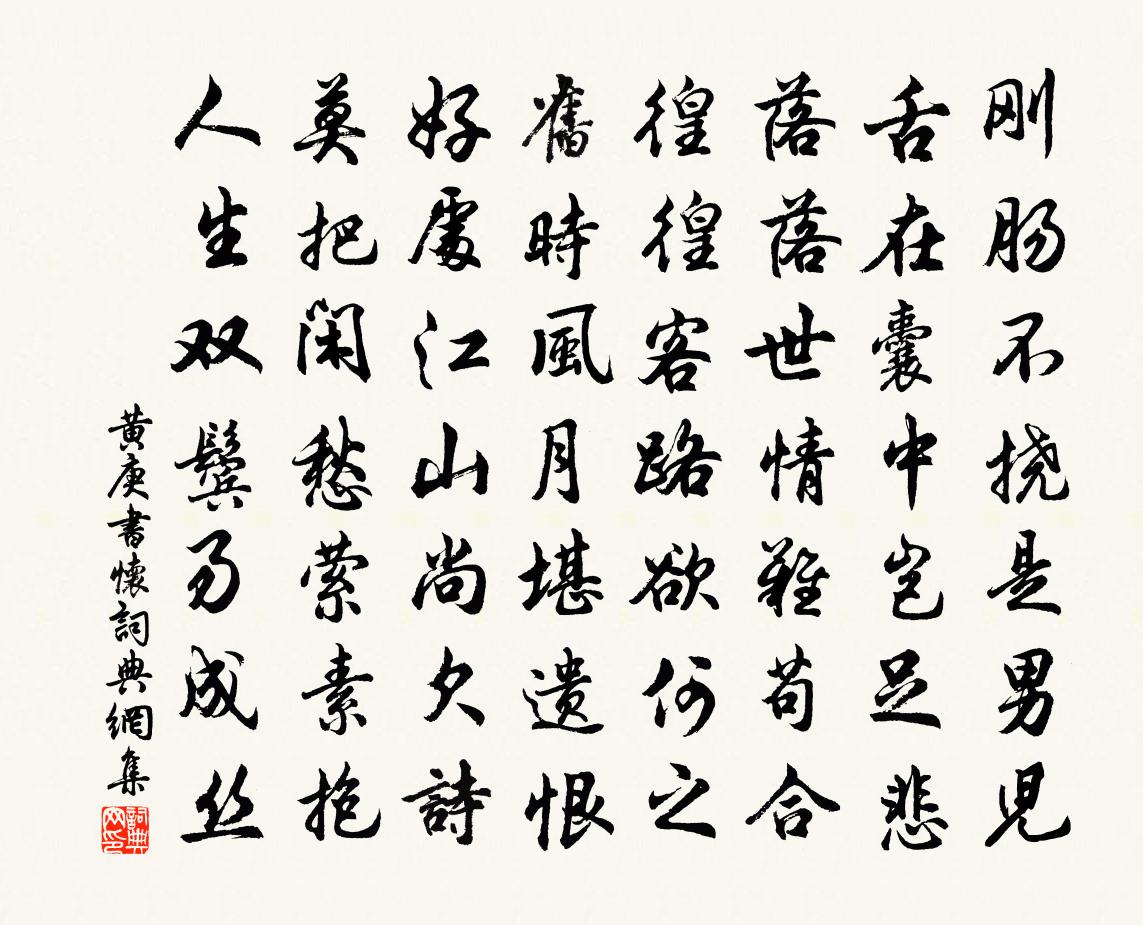 刚肠不挠是男児
舌在囊中岂足悲
落落世情難苟合
徨徨客路欲何之
舊時風月堪遗恨
好處江山尚欠詩
莫把闲愁萦素抱
人生双鬓易成丝
黄庚書懷詞典網集
詞典网印